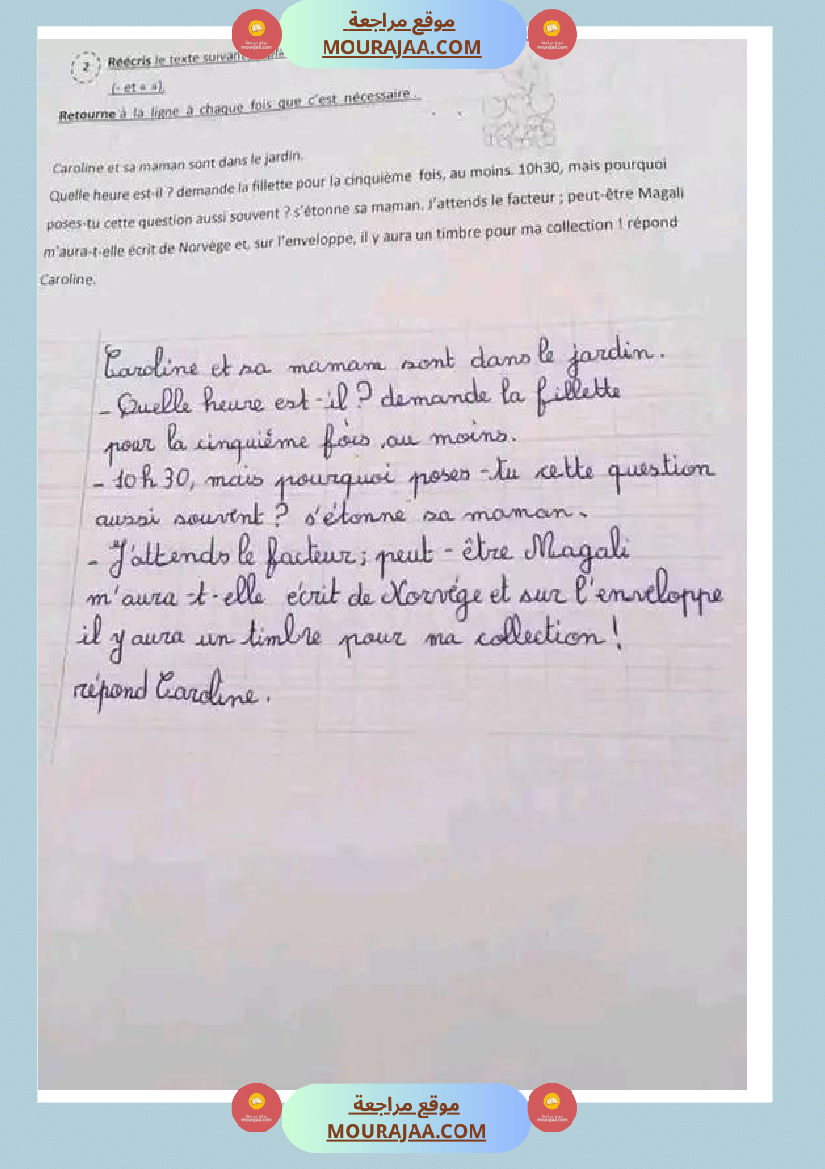 موقع مراجعة
MOURAJAA.COM
2 Réécris le texte suivant
(- et « »).
Retourne à la ligne à chaque fois que c'est nécessaire.
Caroline et sa maman sont dans le jardin.
Quelle heure est-il ? demande la fillette pour la cinquième fois, au moins. 10h30, mais pourquoi
poses-tu cette question aussi souvent ? s'étonne sa maman. J'attends le facteur ; peut-être Magali
m'aura-t-elle écrit de Norvège et, sur l'enveloppe, il y aura un timbre pour ma collection ! répond
Caroline.
Caroline et sa maman sont dans le jardin.
- Quelle heure est-il ? demande la fillette
pour la cinquième fois, au moins.
- 10h30, mais pourquoi poses-tu cette question
aussi souvent ? s'étonne sa maman.
- J'attends le facteur ; peut-être Magali
m'aura-t-elle écrit de Norvège et sur l'enveloppe
il y aura un timbre pour ma collection !
répond Caroline.
موقع مراجعة
MOURAJAA.COM